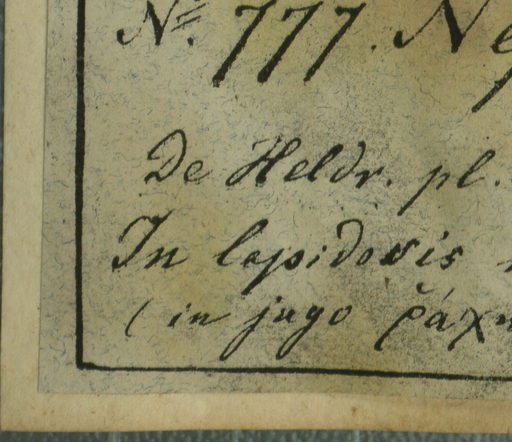 No. 777. Ne
De Heldr. pl.
In lapidosis
( in jugo ῥάχ